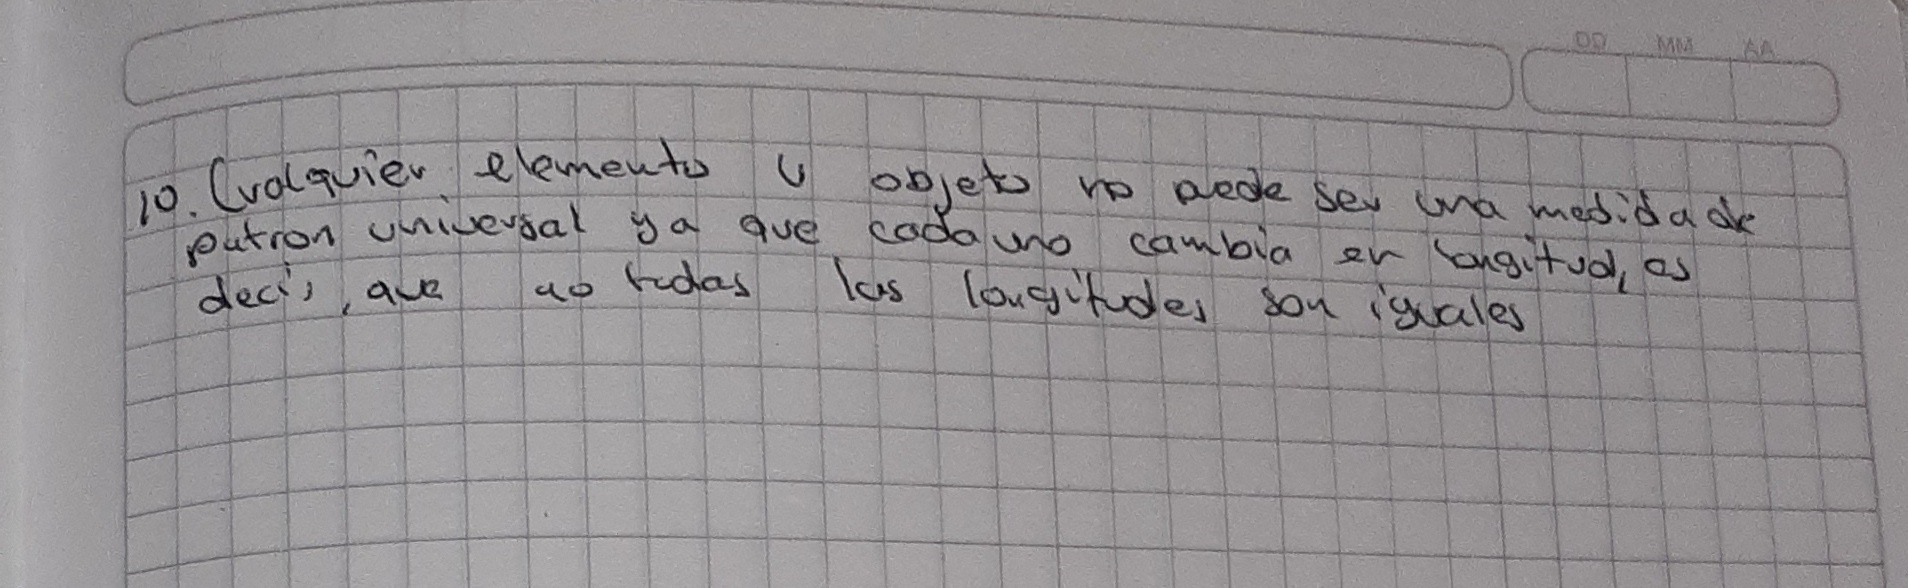 DD MM AA
10. Cualquier elemento u objeto no puede ser una medida de
patron universal ya que cada uno cambia en longitud, es
decir, que no todas las longitudes son iguales